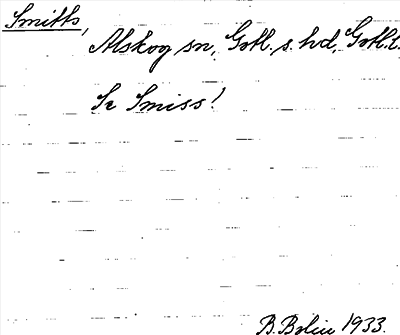 Smitts,
Alskog sn, Gotl. s. hd, Gotl. l.
Se Smiss!
B. Bolin 1933.